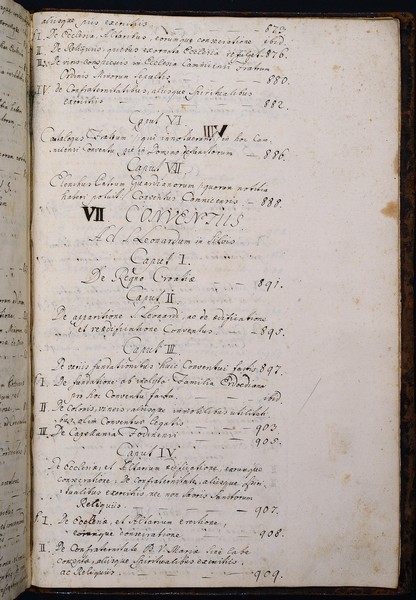 aliisque piis exercitiis — 873.
§ I. De Ecclesia, Altaribus, eorumque consecratione ibid.
II. De Reliquiis, quibus exornata Ecclesia 876.
III. De viris conspicuis in Ecclesia Fratrum
Ordinis Minorum sepultis — 880.
IV. De Confraternitatibus, aliisque Spiritualibus
exercitiis — 882.
Caput VI
Catalogus Fratrum, qui in hoc Con-
Conventu, in Domino — 886.
Caput VII
Patrum Guardianorum, quorum notitia
haberi potuit, Conventus — 888.
VII CONVENTUS
Ad S. Leonardum in
Caput I.
De Regno Croatiæ — 891.
Caput II.
De apparitione S. Leonardi, ac de ædificatione
et reædificatione Conventus — 895.
Caput III
De variis fundationibus huic Conventui factis 897.
§ I. De fundatione ab Familia
pro hoc Conventu facta — ibid.
II. De Colonis, vineis, aliisque immobilibus
Conventui legatis — 903
III. De Capellania — 905.
Caput IV.
De Ecclesiæ, et Altarium ædificatione, earumque
consecratione, De Confraternitate, aliisque Spiri-
tualibus exercitiis nec non Sanctorum
Reliquiis — 907.
§ I. De Ecclesiæ, et Altarium erectione,
consecratione — 908.
II. De Confraternitate B. V. Mariæ sine labe
conceptæ, aliisque Spiritualibus exercitiis,
ac Reliquiis — 909.